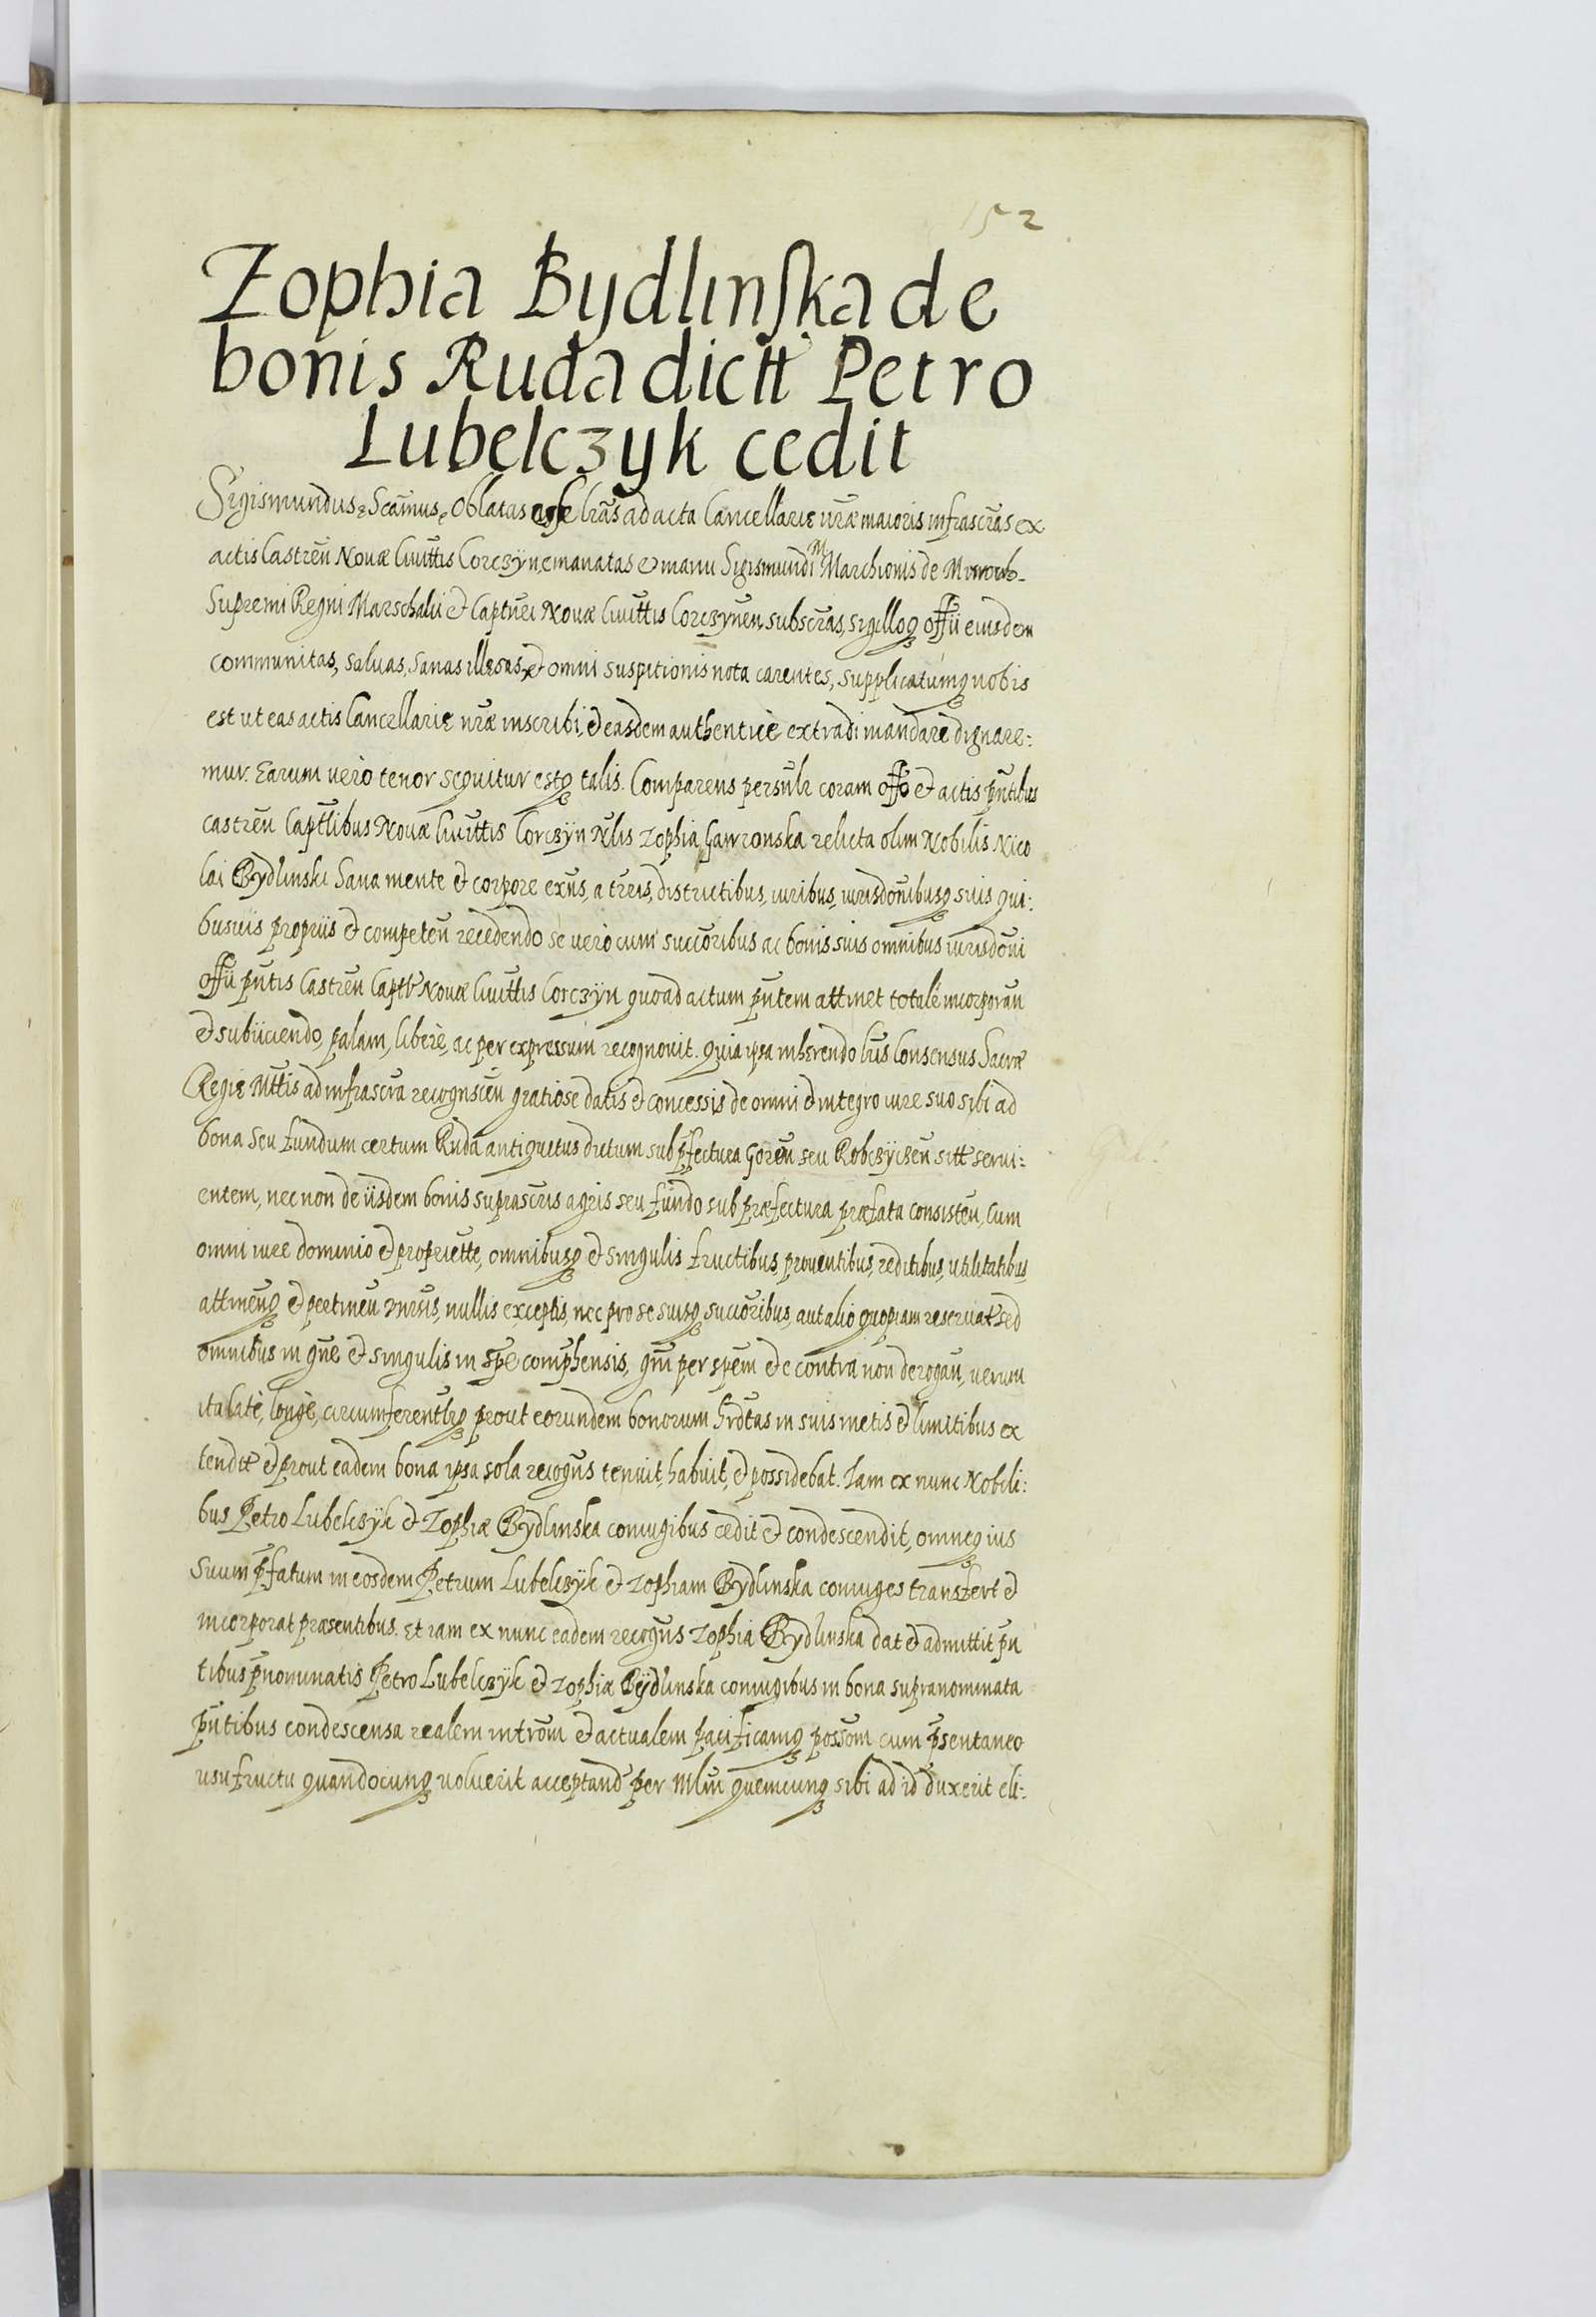 152
Zophia Bydlinska de
bonis Ruda dictt Petro
Lubelczyk cedit
Sigismundus Scamus Oblatas esse lras ad acta Cancellariæ nræ maioris infrascras ex
actis Castren Novæ Civittis Corczyn emanatas et manu Sigismundi Marchionis de
Supremi Regni Marschalii et Captnei Novæ Civittis Corczynen subscras, sigilloq offii eiusdem
communitas, salvas, sanas illesas, et omni suspitionis nota carentes, supplicatumq nobis
est ut eas actis Cancellariæ nræ inscribi, et easdem authenticè extradi mandare dignare:
mur. Earum verò tenor sequitur estq talis. Comparens persnlr coram offo et actis pntibus
castren Captlibus Novæ Civittis Corczyn Nlis Zophia Gawronska relicta olim Nobilis Nico
lai Bydlinski sana mente et corpore exns, a trris, districtibus, iuribus, iurisdonibusq suis qui:
busvis propriis et competen recedendo se verò cum succoribus ac bonis suis omnibus iurisdoni
offii pntis Castren Captl Novæ Civittis Corczyn quoad actum pntem attinet totalé incorporan
et subiiciendo, palam, liberè, ac per expressum recognovit. Quia ipsa inhærendo lris Consensus Sacræ
Regiæ Mttis ad infrascra recognscen gratiose datis et concessis de omni et integro iure suo sibi ad
bona seu fundum certum Ruda antiquitus dictum sub pfectura Goren seu Robczycen sitt servi:
entem, nec non de iisdem bonis suprascris agris seu fundo sub præfectura præfata consisten, cum
omni iure dominio et propriette, omnibusq et singulis fructibus, proventibus, reditibus, utilitatibus
attinenq et pertinen vnrsis, nullis exceptis, nec pro se suisq succoribus, aut alio quopiam reservat sed
omnibus in gne et singulis in spe comphensis, gni per spem et e contra non derogan, verum
ita latè, longè, circumferentlrq prout eorundem bonorum hrdtas in suis metis et limitibus ex
tendit et prout eadem bona ipsa sola recogns tenuit, habuit, et possidebat. Iam ex nunc Nobili:
bus Petro Lubelczyk et Zophiæ Bydlinska coniugibus cedit et condescendit, omneq ius
suum pfatum in eosdem Petrum Lubelczyk et Zophiam Bydlinska coniuges transfert et
incorporat præsentibus. Et iam ex nunc eadem recogns Zophia Bydlinska dat et admittit pn
tibus pnominatis Petro Lubelczyk et Zophiæ Bydlinska coniugibus in bona supranominata
pntibus condescensa realem introm et actualem pacificamq possom cum psentaneo
usufructu quandocunq voluerit acceptand per Mlm quemcunq sibi ad id duxerit eli: